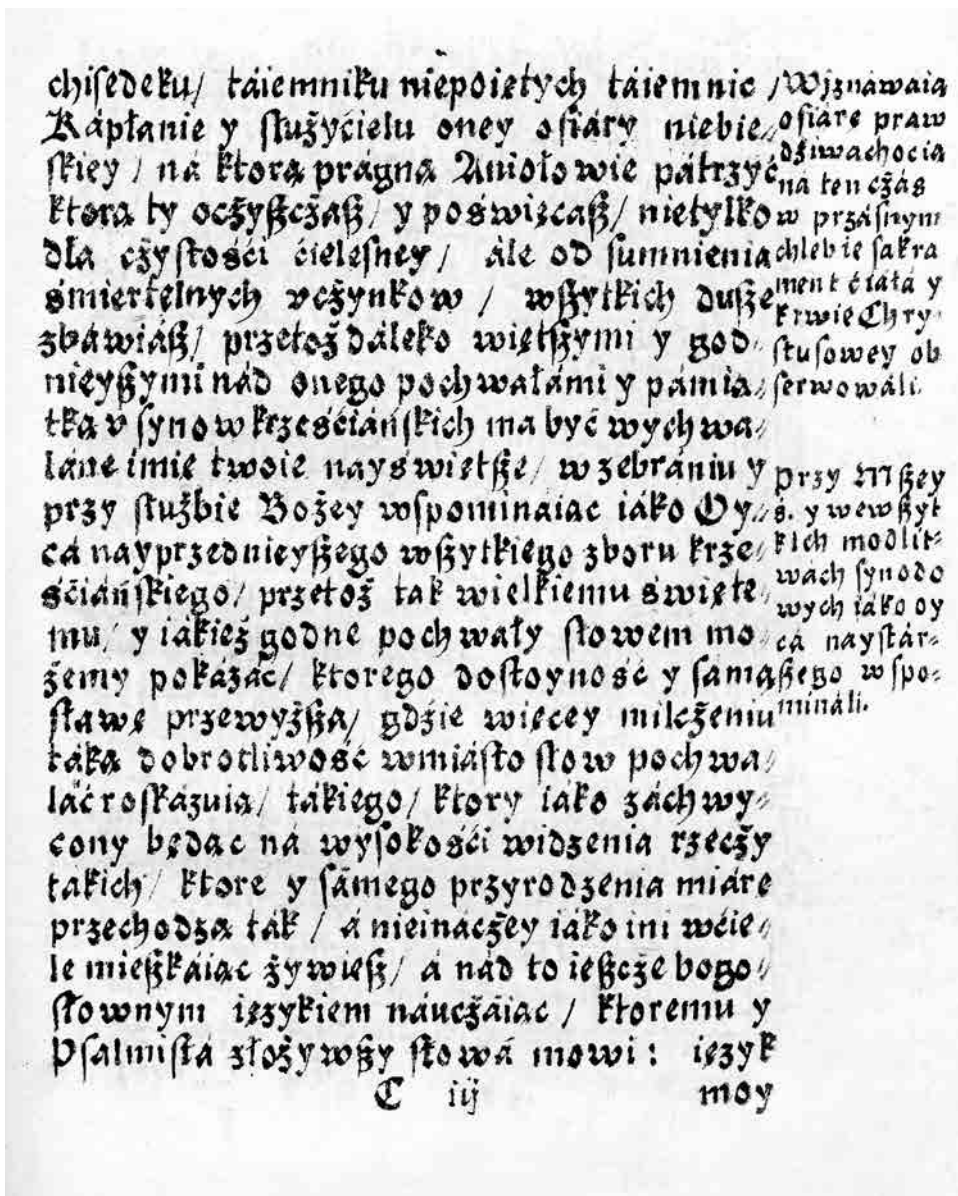 chisedeku/ táiemniku niepoiętych táiemnic /
Kápłanie y służyćielu oney ofiáry niebie⸗
skiey / ná ktorą prágną Aniołowie pátrzyć
ktorą ty oczyszczasz/ y poświęcasz/ nietylko
dla czystośći ćielesney/ ále od sumnienia
śmiertelnych vczynkow / wszytkich dusze
zbáwiász/ przetoż dáleko więtszymi y god⸗
nieyszymi nád onego pochwałámi y pámią⸗
tką v synow krześćiáńskich ma być wychwa⸗
láne imię twoie nayświetsze/ w zebrániu y
przy służbie Bożey wspomináiac iáko Oy⸗
cá nayprzednieyszego wszytkiego zboru krze⸗
śćiáńskiego/ przetoż tak wielkiemu święte⸗
mu/ y iákież godne pochwały słowem mo⸗
żemy pokázáć/ ktorego dostoyność y sámą
sławę przewyższa/ gdźie więcey milczeniu
táka dobrotliwość wmiásto słow pochwa⸗
láć roskázuia/ tákiego/ ktory iáko záchwy⸗
cony będąc ná wysokośći widzenia rzeczy
tákich/ ktore y sámego przyrodzenia miárę
przechodzą ták / á nieináczey iáko ini wćie⸗
le mieszkáiac żywiesz/ á nád to ieszcze bogo⸗
słownym ięzykiem náuczáiac / ktoremu y
Psalmistá złożywszy słowá mowi: ięzyk
C iij moy
Wyznáwáią
ofiárę praw
dźiwá chocia
ná ten czás
w przásnym
chlebie sákra
ment ćiáłá y
krwie Chry⸗
stusowey ob
serwowáli.
Przy Mszey
ś. y wewszyt
kich modlit⸗
wách synodo
wych iáko oy
cá naystár⸗
szego wspo⸗
mináli.